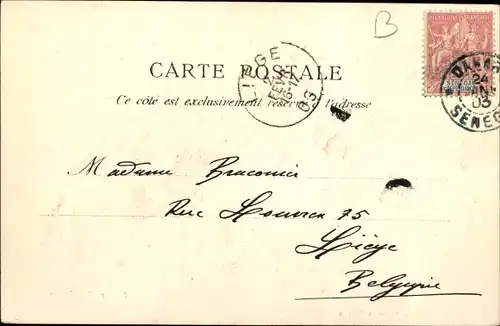 B
CARTE POSTALE
Ce côté est exclusivement réservé à l'adresse
LIEGE
03
DAKAR
24
03
SENEGAL
Madame Braconier
Rue Louvrex 75
Liège
Belgique